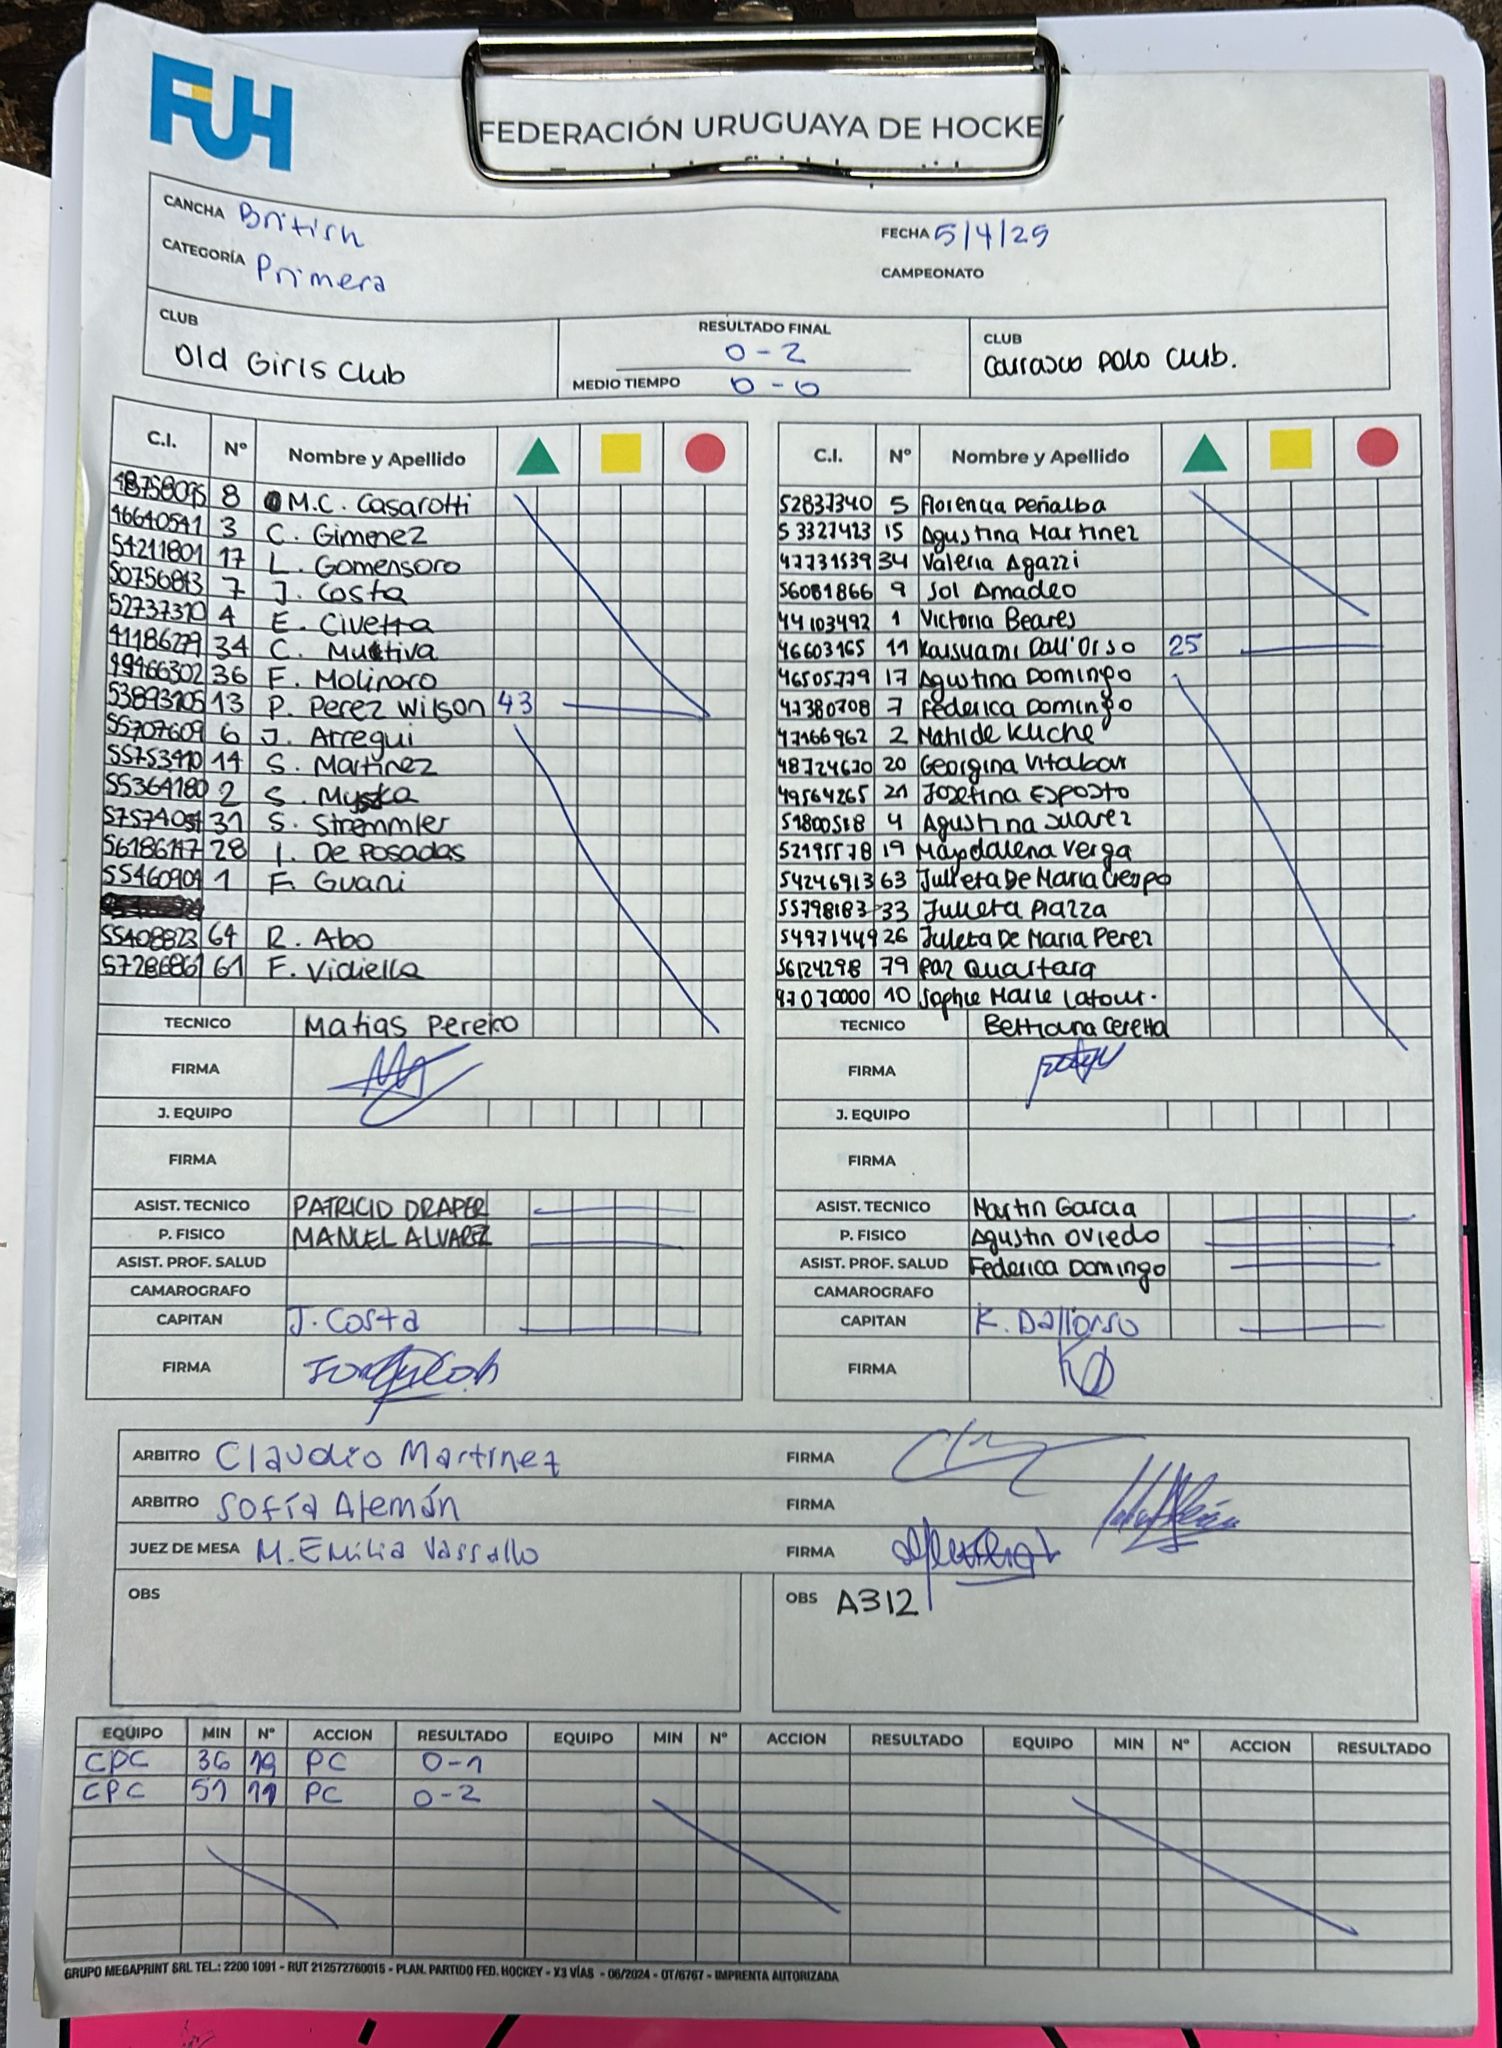 FUH
FEDERACIÓN URUGUAYA DE HOCKEY
CANCHA British
FECHA 5/4/25
CATEGORÍA Primera
CAMPEONATO
CLUB
Old Girls Club
RESULTADO FINAL
0-2
MEDIO TIEMPO 0-0
CLUB
Carrasco Polo Club.
C.I. Nº Nombre y Apellido
48758095 8 M.C. Casarotti
46640541 3 C. Gimenez
54211801 17 L. Gomensoro
50756843 7 J. Costa
52737310 4 E. Civetta
41186279 34 C. Mutiva
49466302 36 F. Molinaro
53893705 13 P. Perez Wilson 43
55707609 6 J. Arregui
55753410 14 S. Martinez
55364180 2 S. Myska
31 S. Stremmler
56186147 28 I. De Posadas
55460904 1 F. Guani
55408823 64 R. Abo
57286861 61 F. Vidiella
TECNICO
FIRMA
J. EQUIPO
FIRMA
ASIST. TECNICO PATRICIO DRAPER
P. FISICO MANUEL ALVAREZ
ASIST. PROF. SALUD
CAMAROGRAFO
CAPITAN J. Costa
FIRMA
C.I. Nº Nombre y Apellido
52837340 5 Florencia Peñalba
53327423 15 Agustina Martinez
47731539 34 Valeria Agazzi
56081866 9 Sol Amadeo
44103492 1 Victoria Beares
46603165 11 Kaisuami Dall'Orso 25
46505779 17 Agustina Domingo
47380708 7 Federica Domingo
47166962 2 Matilde Kuche
48724670 20 Georgina Vitabar
49564265 21 Josefina Esposto
51800518 4 Agustina Suarez
52195578 19 Magdalena Verga
54246913 63 Julieta De Maria Crespo
55798183 33 Julieta Piazza
54971449 26 Julieta De Maria Perez
56124298 79 Paz Quartara
47070000 10 Sophie Marie Latour.
TECNICO Bettiana Ceretta
FIRMA
J. EQUIPO
FIRMA
ASIST. TECNICO Martin Garcia
P. FISICO Agustin Oviedo
ASIST. PROF. SALUD Federica Domingo
CAMAROGRAFO
CAPITAN K. Dallorso
FIRMA
ARBITRO Claudio Martinez FIRMA
ARBITRO Sofía Alemán FIRMA
JUEZ DE MESA M. Emilia Vassallo FIRMA
OBS
OBS A312
EQUIPO MIN Nº ACCION RESULTADO EQUIPO MIN Nº ACCION RESULTADO EQUIPO MIN Nº ACCION RESULTADO
CPC 36 19 PC 0-1
CPC 51 11 PC 0-2
GRUPO MEGAPRINT SRL TEL.: 2200 1091 - RUT 212572760015 - PLAN. PARTIDO FED. HOCKEY - X3 VÍAS - 06/2024 - OT/6767 - IMPRENTA AUTORIZADA